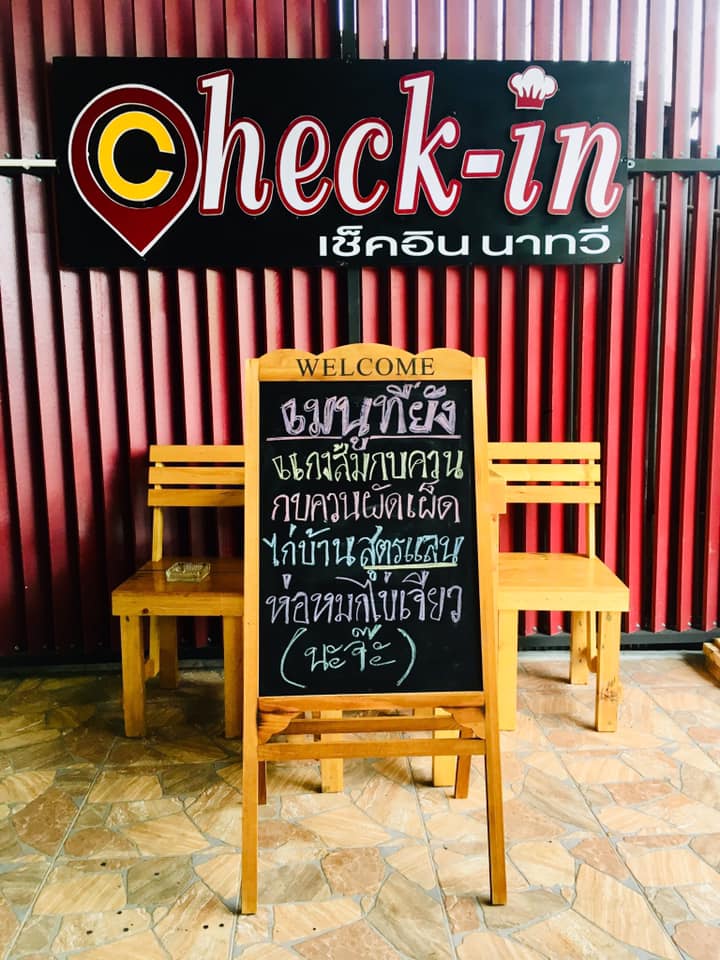 Check-in
เช็คอิน นาทวี
WELCOME
เมนูที่ยัง
แกงส้มกบควน
กบควนผัดเผ็ด
ไก่บ้านสูตรแลน
ห่อหมกไข่เจียว
(นะจ๊ะ)